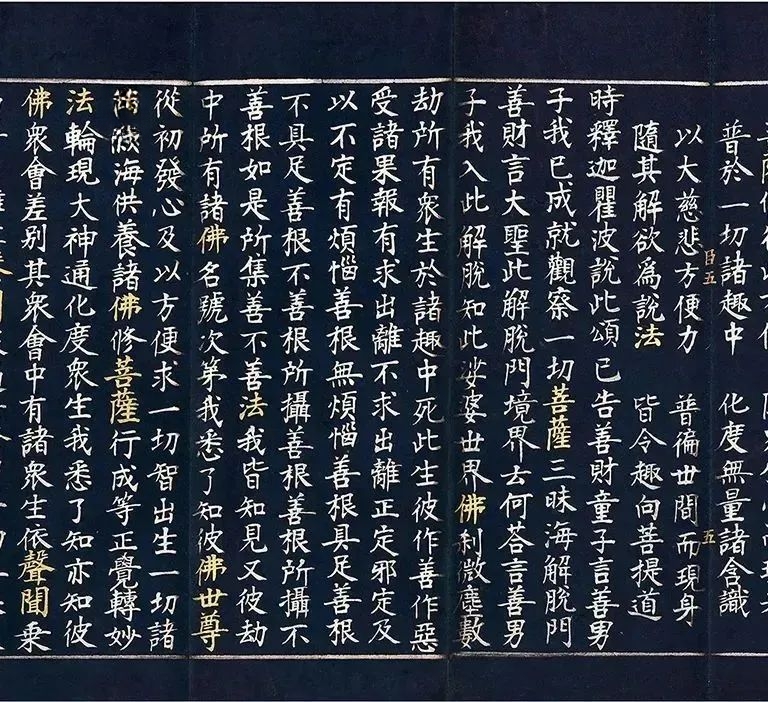 普於一切諸趣中　化度無量諸含識
以大慈悲方便力　普徧世間而現身
隨其解欲為說法　皆令趣向菩提道
時釋迦瞿波說此頌已告善財童子言善男
子我已成就觀察一切菩薩三昧海解脫門
善財言大聖此解脫門境界云何荅言善男
子我入此解脫知此娑婆世界佛剎微塵數
劫所有衆生於諸趣中死此生彼作善作惡
受諸果報有求出離不求出離正定邪定及
以不定有煩惱善根無煩惱善根具足善根
不具足善根不善根所攝善根善根所攝不
善根如是所集善不善法我皆知見又彼劫
中所有諸佛名號次第我悉了知彼佛世尊
從初發心及以方便求一切智出生一切諸
海供養諸佛修菩薩行成等正覺轉妙
法輪現大神通化度衆生我悉了知亦知彼
佛衆會差別其衆會中有諸衆生依聲聞乗